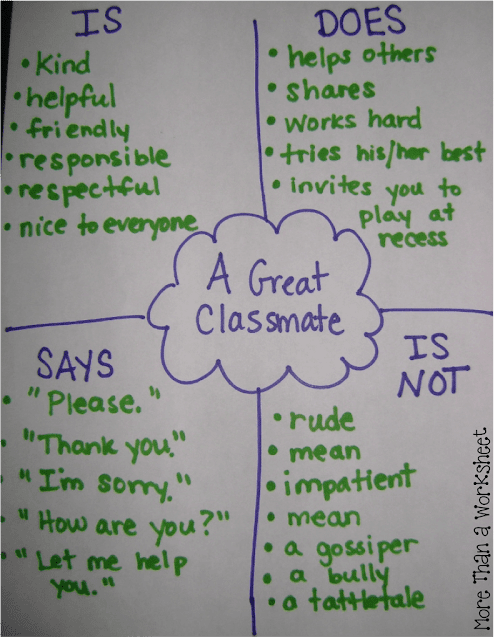 IS
• Kind
• helpful
• friendly
• responsible
• respectful
• nice to everyone
DOES
• helps others
• shares
• works hard
• tries his/her best
• invites you to
play at
recess
A Great
Classmate
SAYS
• "Please."
• "Thank you."
• "I'm sorry."
• "How are you?"
• "Let me help
you."
IS
NOT
• rude
• mean
• impatient
• mean
• a gossiper
• a bully
• a tattletale
More Than a Worksheet